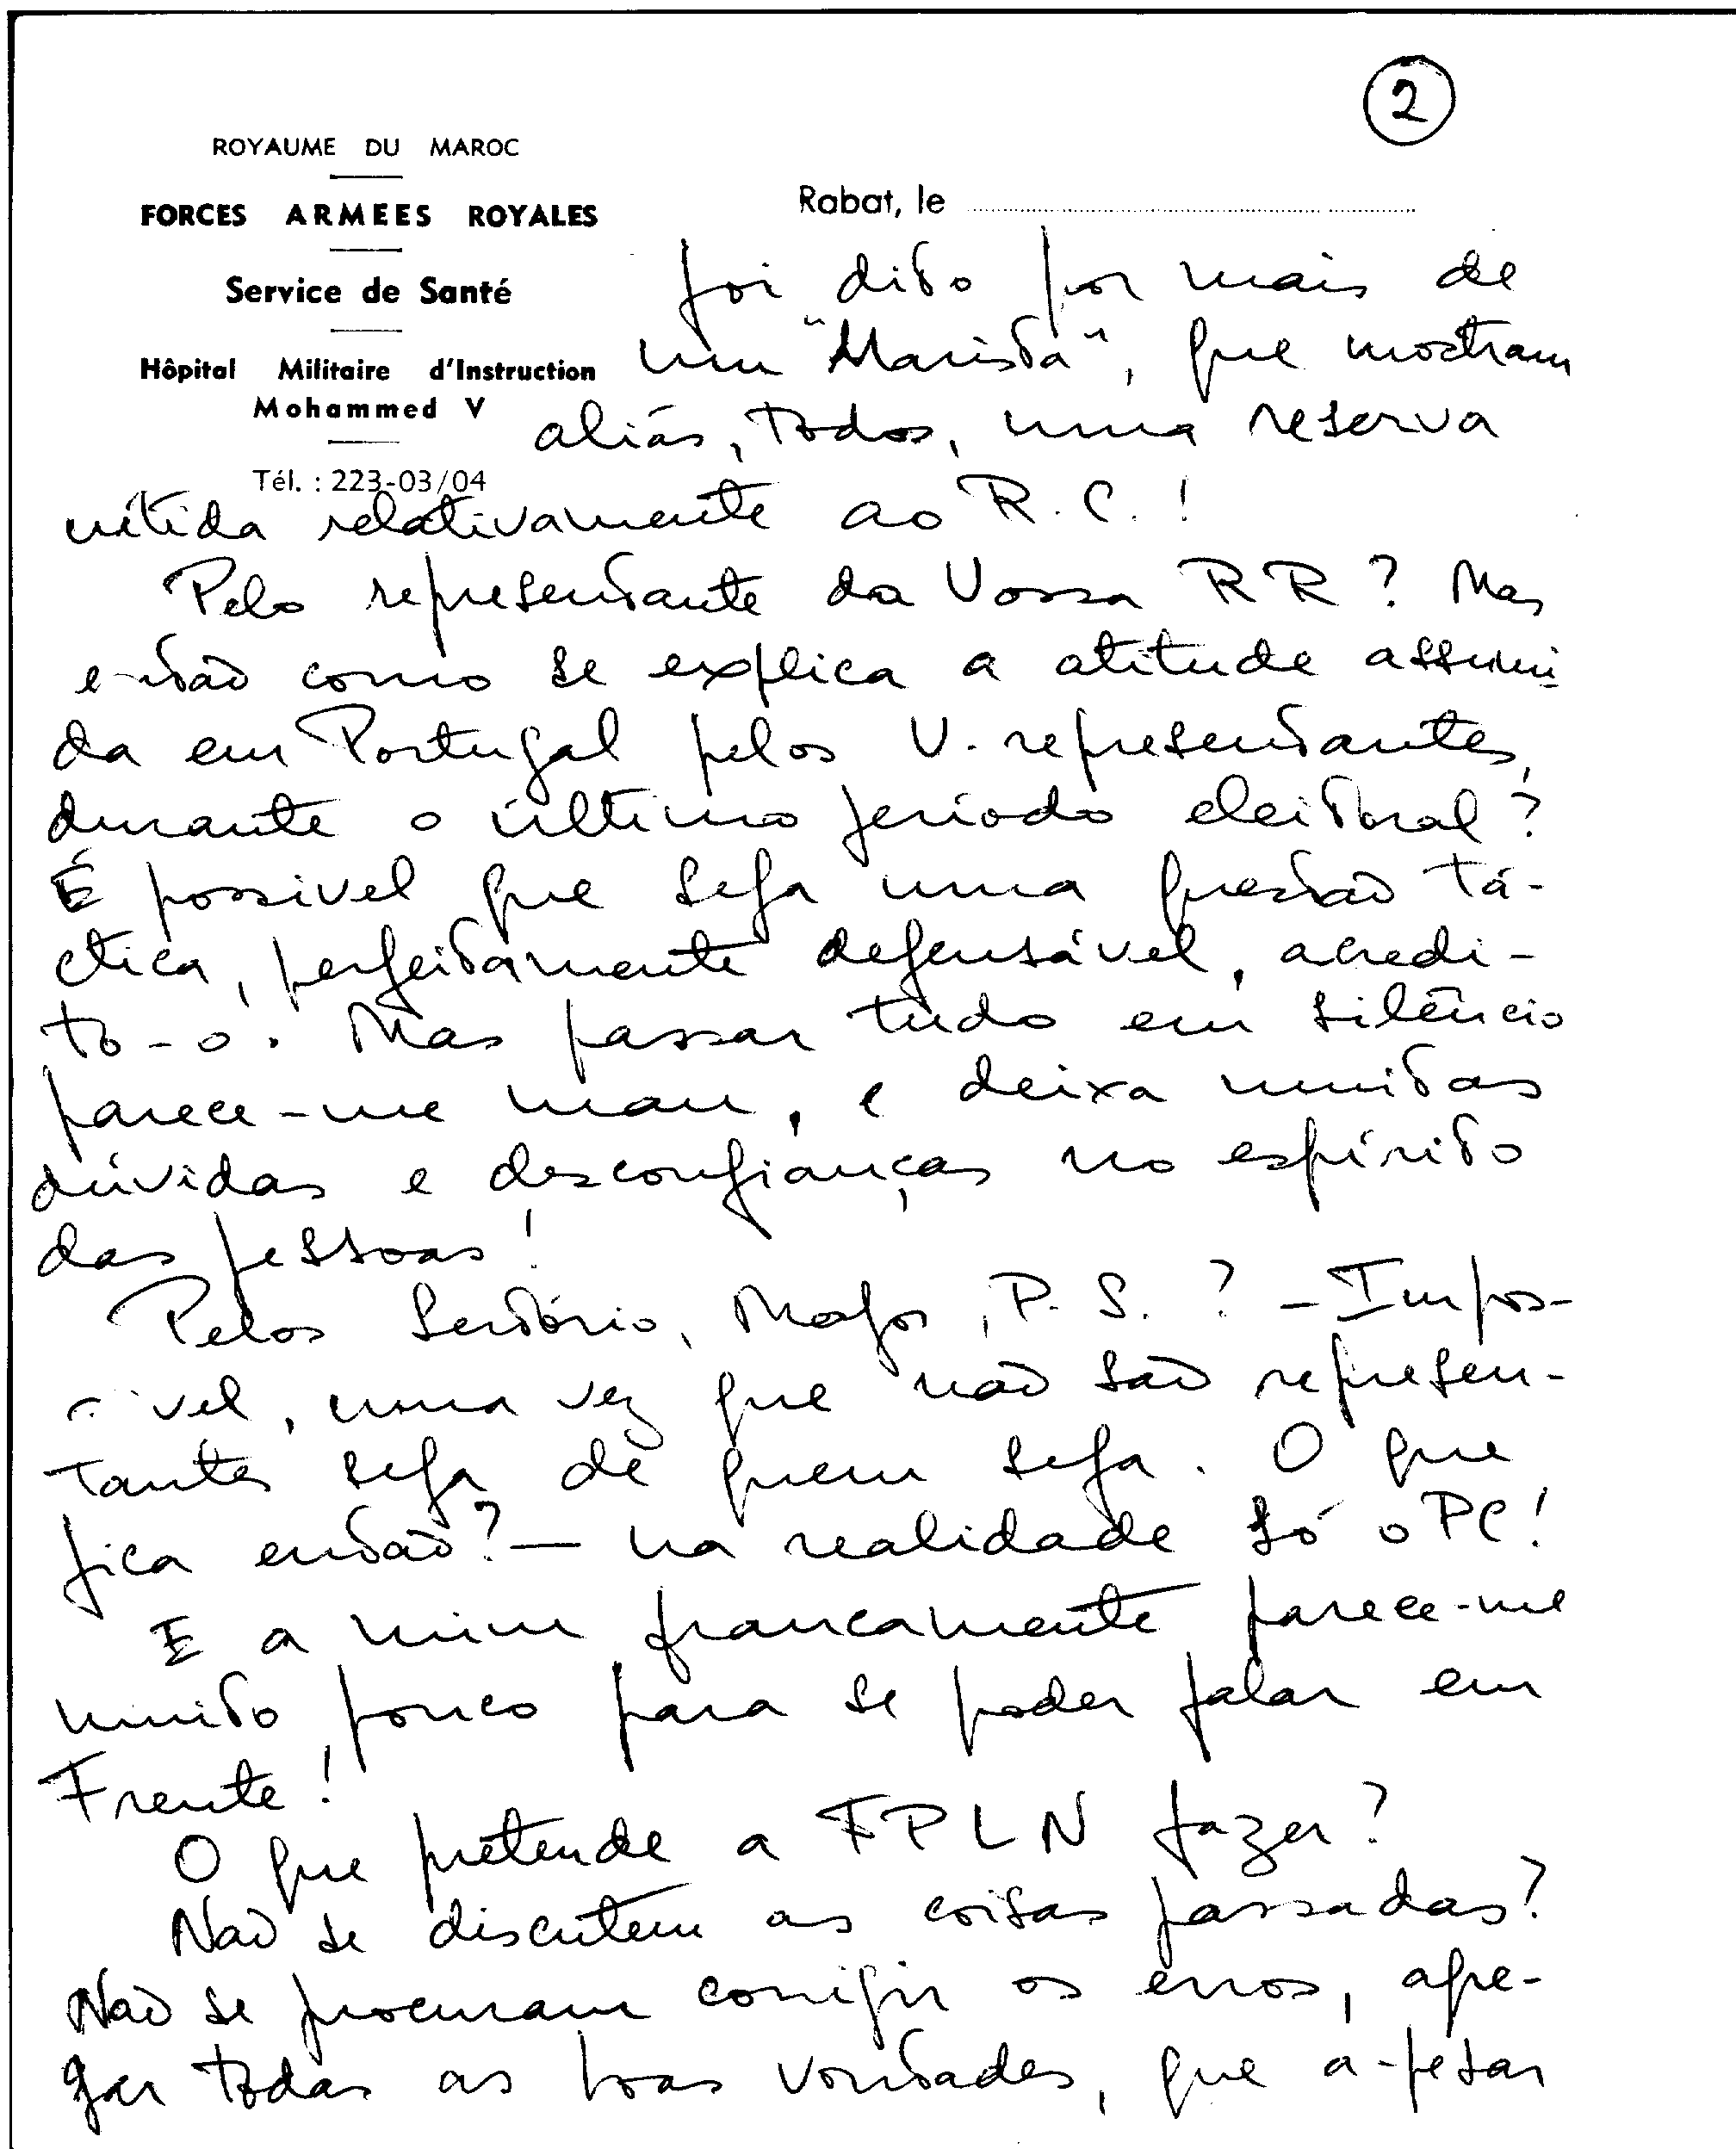 2
ROYAUME DU MAROC
FORCES ARMEES ROYALES
Service de Santé
Hôpital Militaire d'Instruction
Mohammed V
Tél. : 223-03/04
Rabat, le
foi dito por mais de
um "Marista", que mostram
aliás, todos, uma reserva
nítida relativamente ao R.C.!
Pelo representante da Vossa RR? Mas
então como se explica a atitude assumi-
da em Portugal pelos V. representantes,
durante o último período eleitoral?
É possivel que seja uma questão tá-
ctica, perfeitamente defensável, acredi-
to-o. Mas passar tudo em silêncio
parece-me mau, e deixa muitas
dúvidas e desconfianças no espírito
das pessoas!
Pelos Sertório, , P. S. ? - Impos-
sivel, uma vez que não são represen-
tantes seja de quem seja. O que
fica então? - na realidade só o PC!
E a mim francamente parece-me
muito pouco para se poder falar em
Frente!
O que pretende a FPLN fazer?
Não se discutem as coisas passadas?
Não se procuram corrigir os erros,
todas as boas vontades, que a-pesar